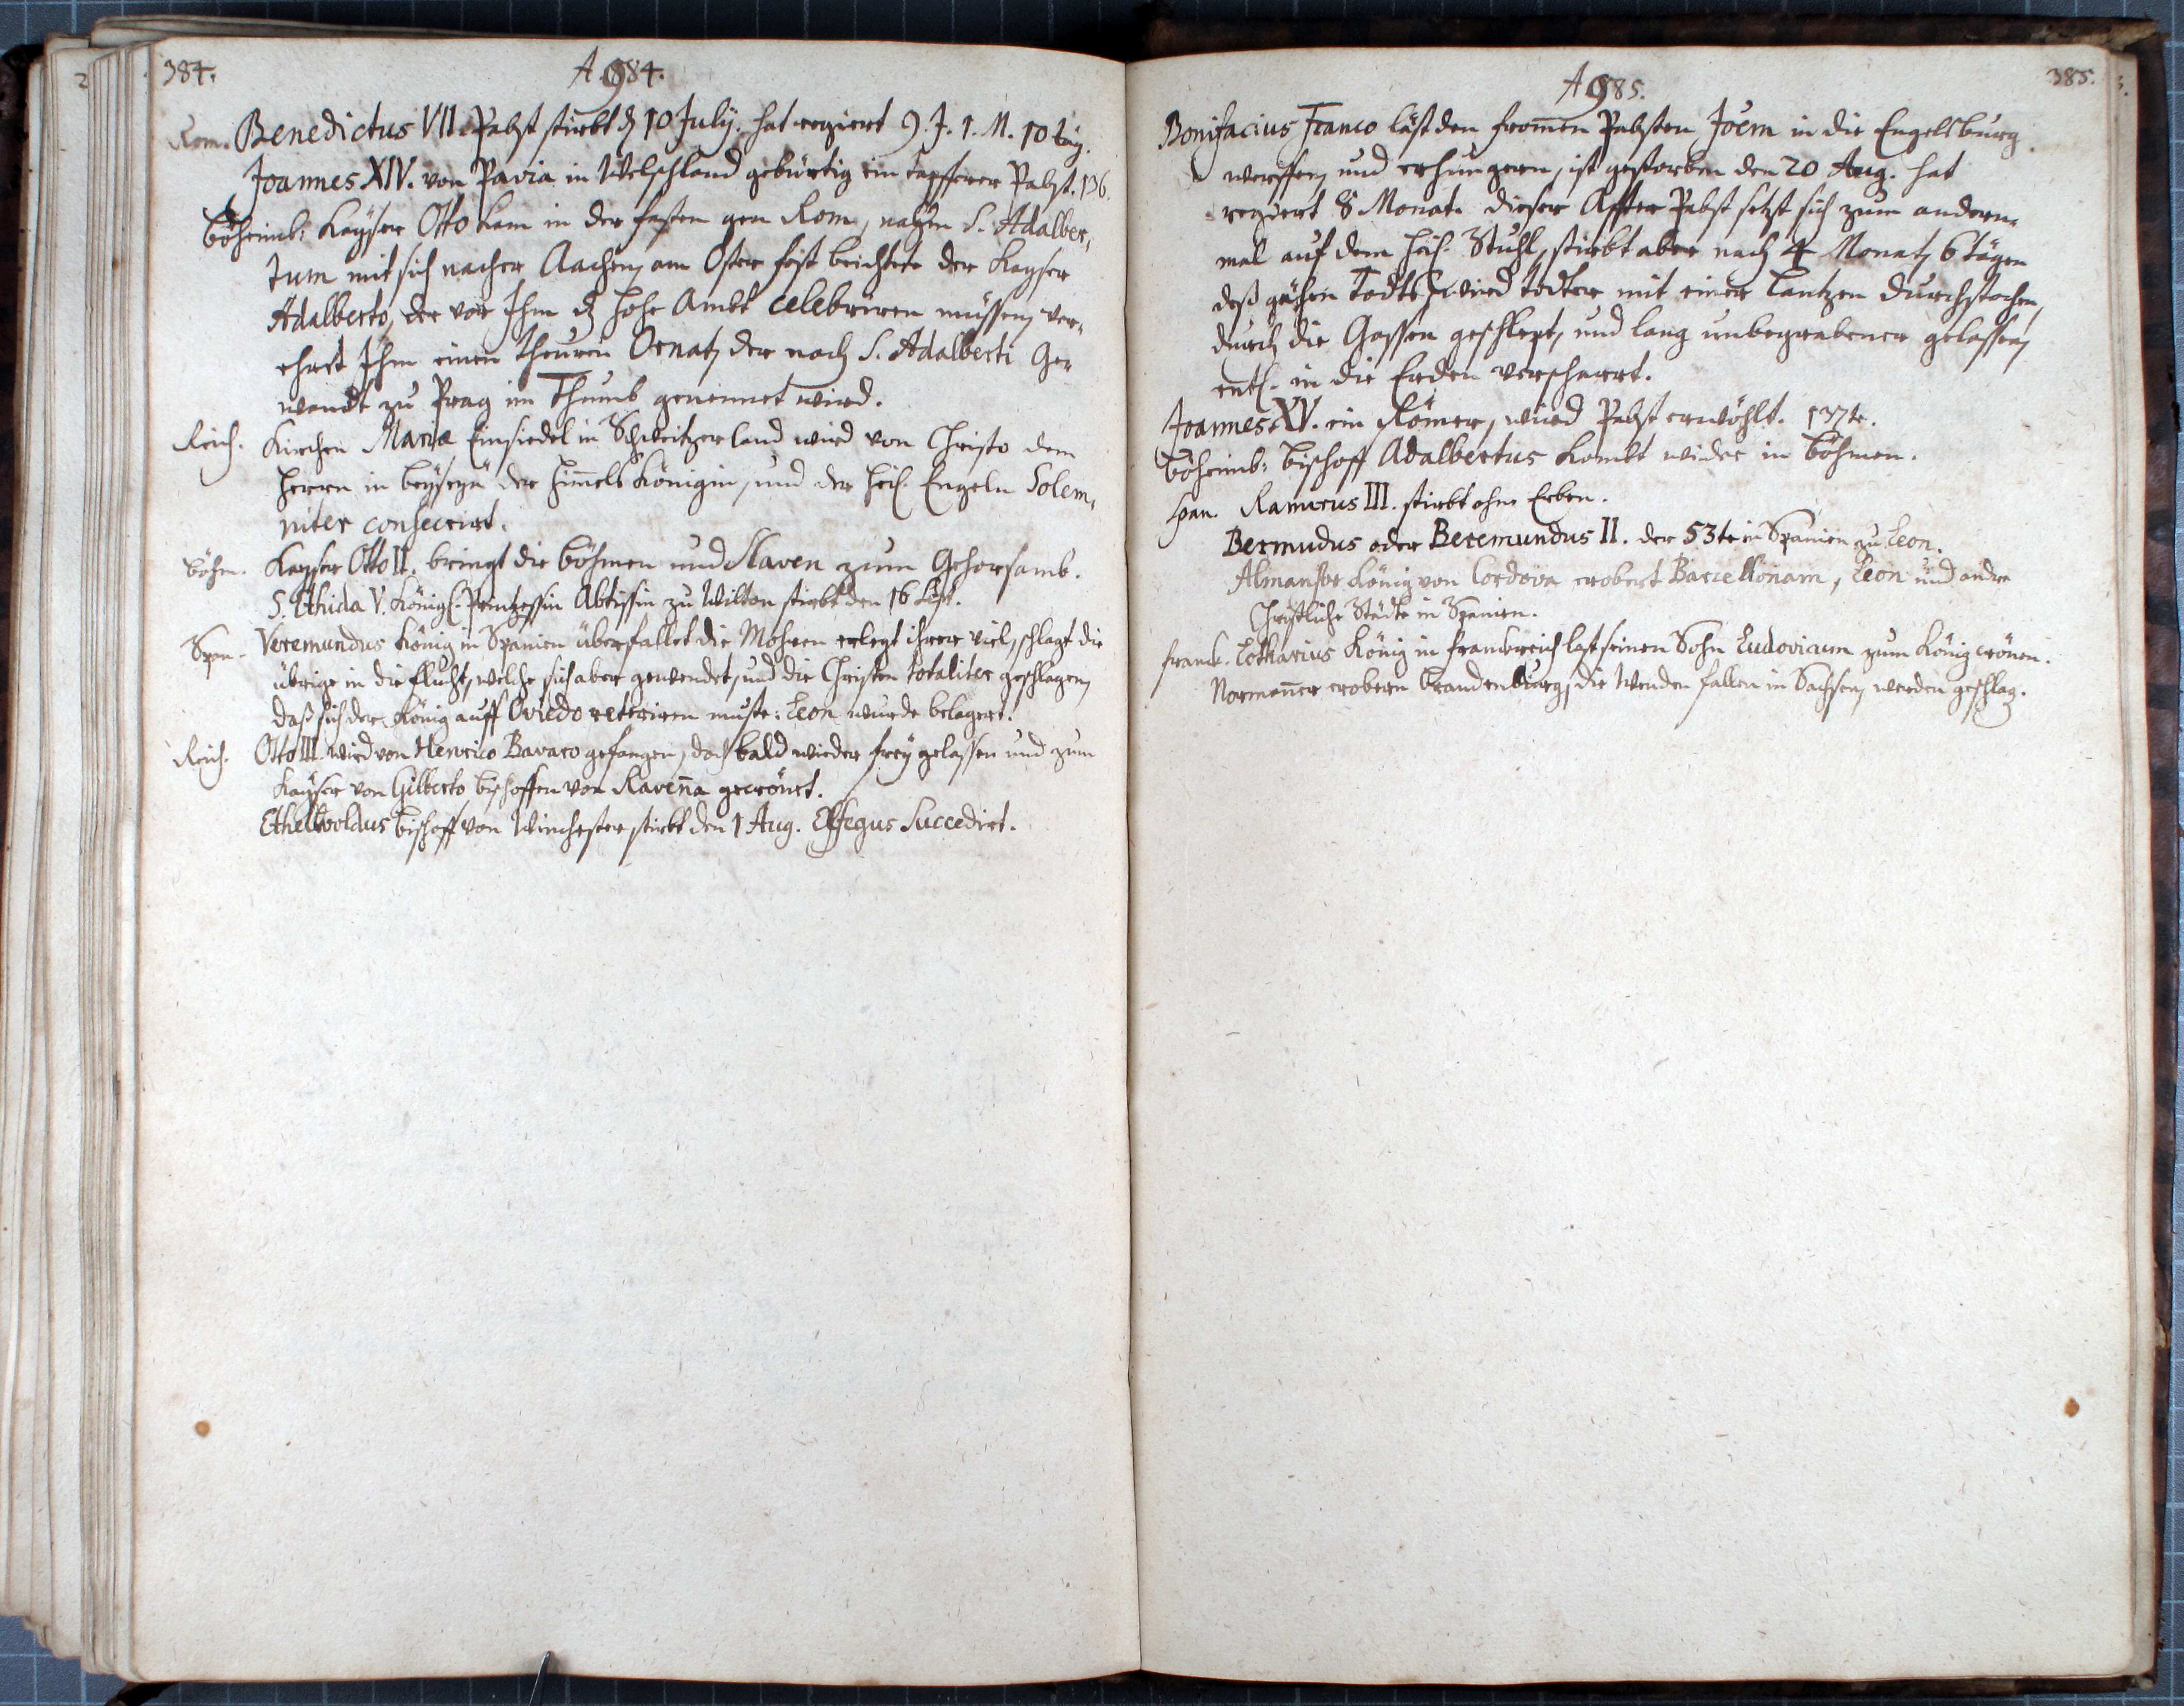 384.
A. 984.
Rom. Benedictus VII. Pabst stirbt dz 10 July. hat regiert 9. J. 1. M. 10 Tag.
Joannes XIV. von Pavia in Welschland gebürtig ein tapfferer Pabst. 136.
Böheimb: Kayser Otto kam in der fasten gen Rom, nahm S. Adalber,
tum mit sich nacher Aachen, am Oster fest beichtete der Kayser
Adalberto, der vor Ihm dz hohe Ambt celebriren müssen, ver,
ehrt Ihm einen theuren Ornat, der noch S. Adalberti Ge,
wandt zu Prag im Thumb genennet wird.
Reich. Kirchen Mariæ Einsiedel in Schweitzerland wird von Christo dem
Herrn in beyseyn der Himels Königin, und der heil. Engeln Solem,
niter consecrirt.
Böhm. Kayser Otto II. bringt die Böhmen und Slaven zum Gehorsamb.
S. Ethida V. Königl. Printzessin Abtissin zu Wilton stirbt den 16 Sept.
Span. Veremundus König in Spanien überfallet die Mohren erlegt ihrer viel, schlagt die
übrige in die flucht, welche sich aber gewendet, und die Christen totaliter geschlagen,
daß sich der König auff Oviedo reteriren muste. Leon wurde belagert.
Reich. Otto III. wird von Henrico Bavaro gefangen, doch bald wieder frey gelassen und zum
Kayser von Gilberto bischoffen von Raveña gecrönet.
Ethelwoldus bischoff von Winchester stirbt den 1 Aug. Elfegus Succedirt.
385.
A 985.
Bonifacius Franco läst den fromen Pabsten Joem in die Engelsburg
werffen, und erhungern, ist gestorben den 20 Aug. hat
regiert 8 Monat. dieser Affter Pabst setzt sich zum andern
mal auf dem heil. Stuhl, stirbt aber nach 4 Monat, 6 tägen
deß gähen Todts, wird todter mit einer Lantzen durchstochen,
durch die Gassen geschlept, und lang unbegrabener gelassen,
entl. in die Erden verscharrt.
Joannes XV. ein Römer, wird Pabst erwöhlt. 137te.
Böheimb: Bischoff Adalbertus kombt wider in Böhmen.
Span. Ramirus III. stirbt ohne Erben.
Bermudus oder Beremundus II. der 53te in Spanien zu Leon.
Almansor König von Cordova erobert Barcellonam, Leon und andre
Christliche Städte in Spanien.
Franck. Lotharius König in franckreich last seinen Sohn Ludovicum zum König crönen.
Normaner erobern Brandenburg, die Wenden fallen in Sachsen, werden geschlag.